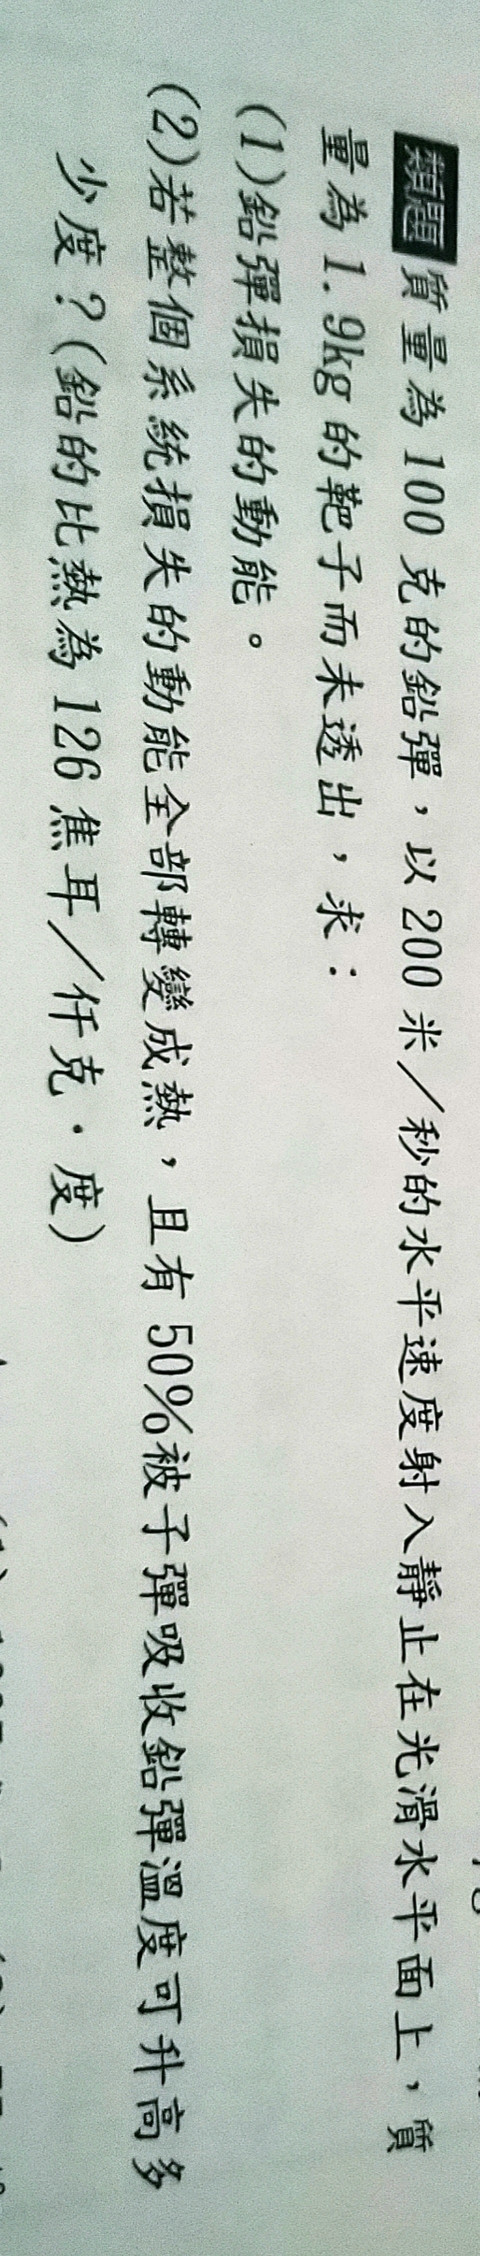 類題 質量為 100 克的鉛彈，以 200 米／秒的水平速度射入靜止在光滑水平面上，質
量為 1.9kg 的靶子而未透出，求：
(1)鉛彈損失的動能。
(2)若整個系統損失的動能全部轉變成熱，且有 50%被子彈吸收鉛彈溫度可升高多
少度？(鉛的比熱為 126 焦耳／仟克·度)